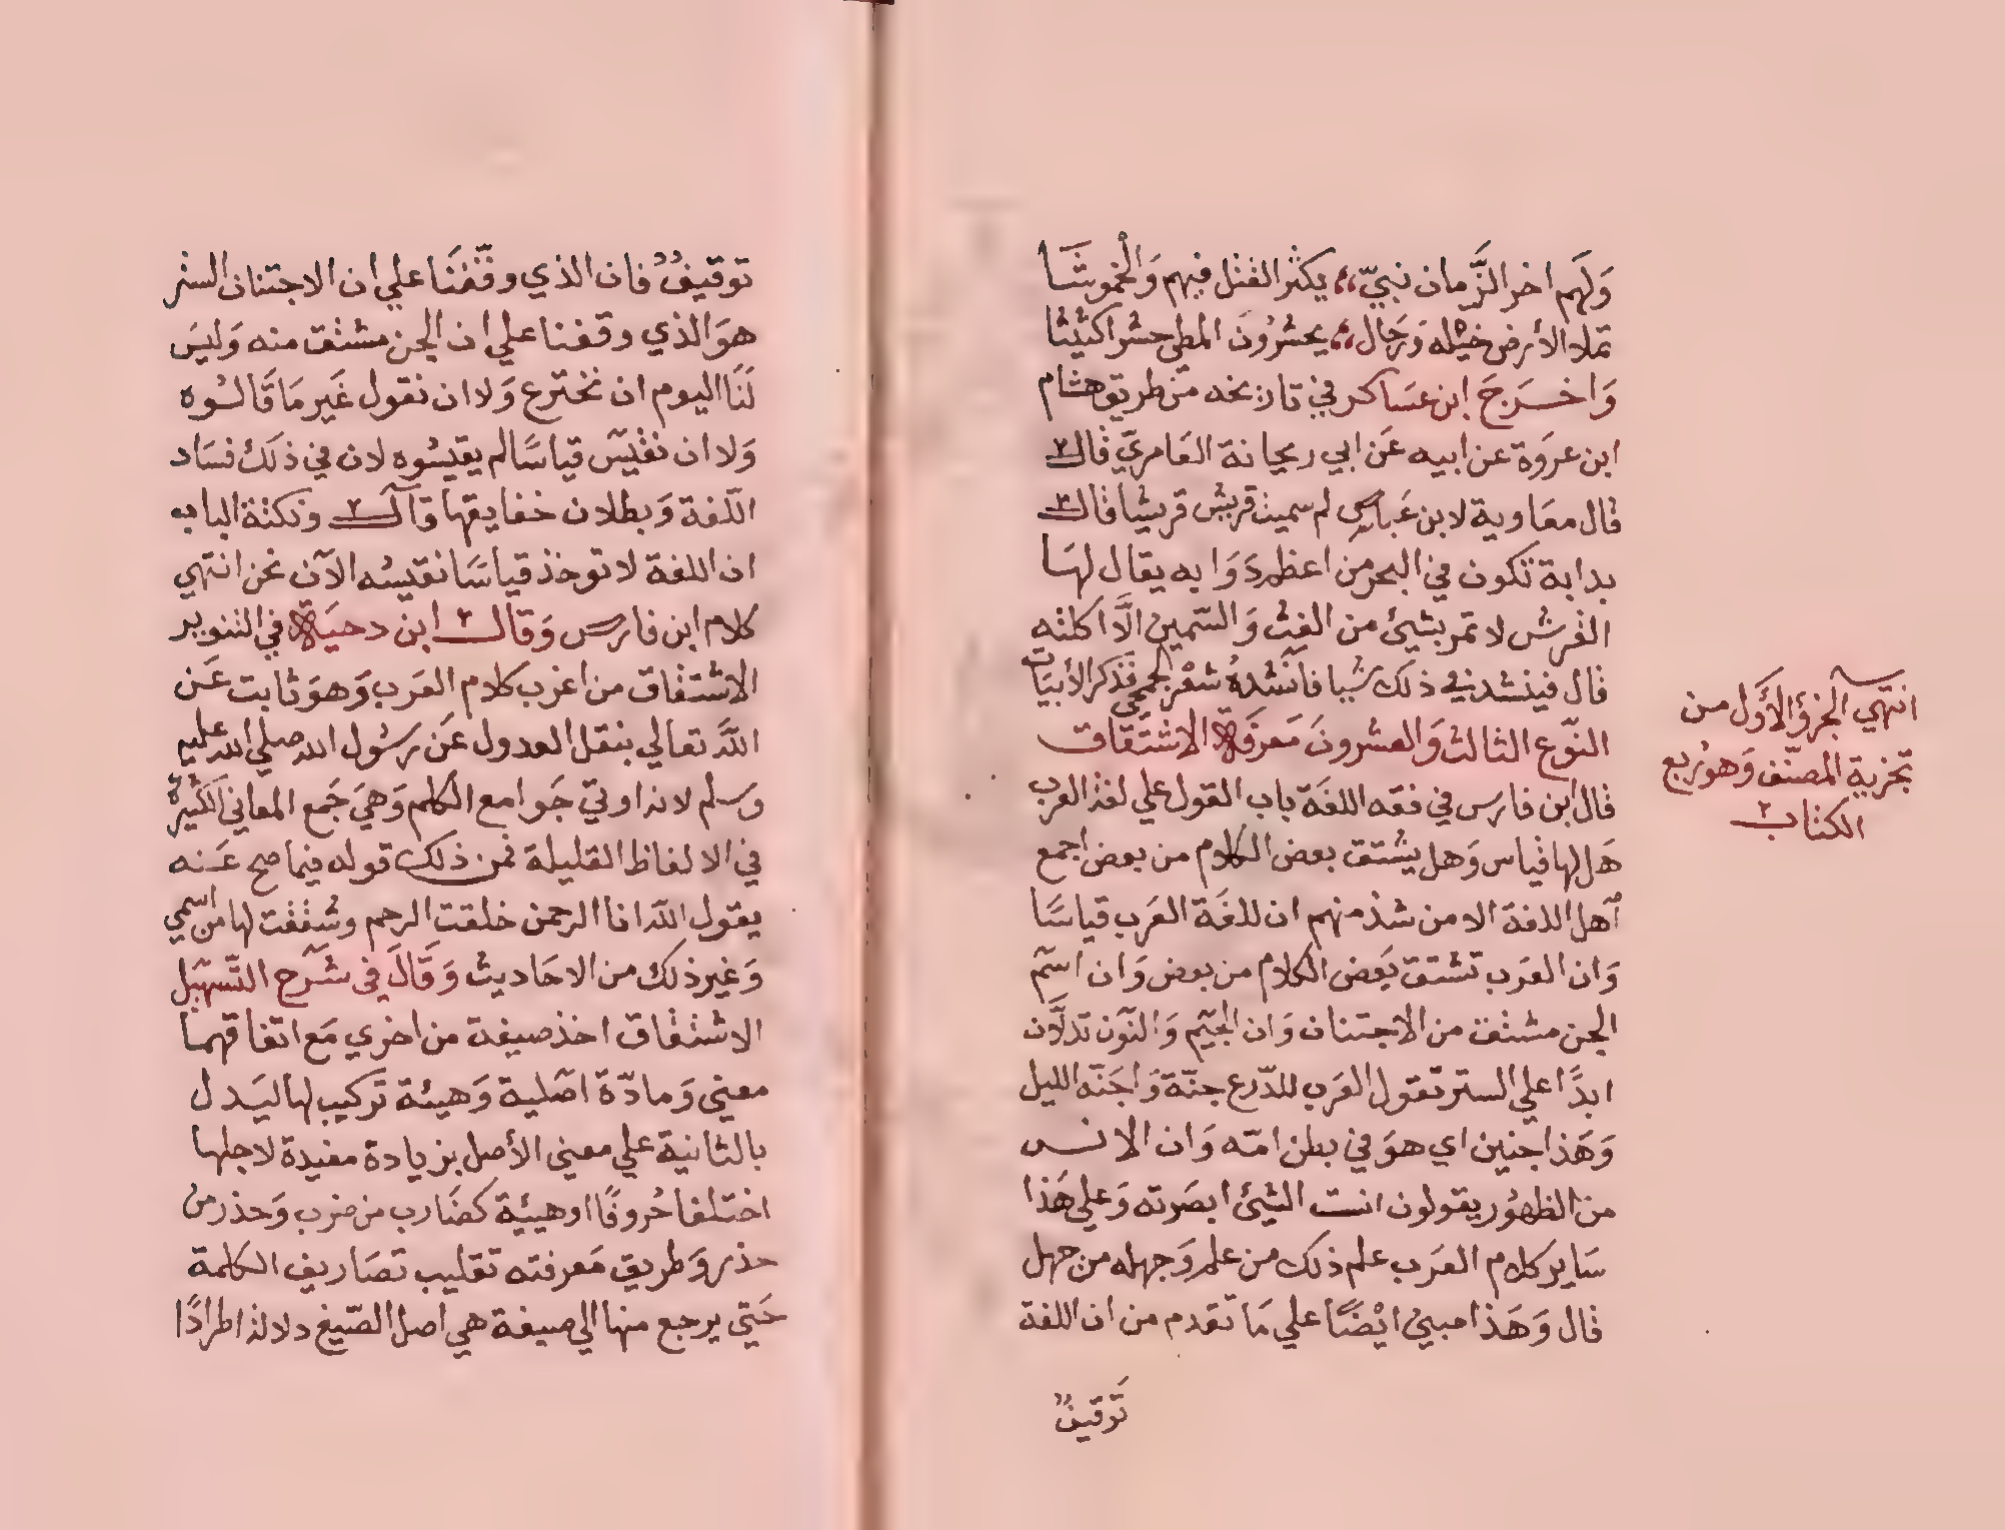 وَلَهم اخر الزَّمان نبيّ ،، يكثر القتل فيهم وَالخموشَا
تملا الأرض خيله وَرَجال ،، يحشرُون المطي حشرا كثيثا
وَاخرَجَ ابن عسَاكر في تاريخه من طريق هشام
ابن عروَة عن ابيه عَن ابي ريحانة العَامريّ قال
قال معَاوية لابن عَباس لم سميت قريش قريشا قال
بدابة تكون في البحر من اعظم دوَابه يقال لهَا
القرش لا تمر بشئ من الغث وَالسّمين الَّا اكلته
قال فينشد في ذلك شيا فانشدهُ شعْر الجمحي فذكر الأبيَات
النّوع الثالث وَالعشرونَ مَعرفَة الاشتقاق
قال ابن فارسَ في فقه اللغَة باب القول علي لغة العرب
هَل لها قياس وَهل يشتق بعض الكلام من بعض اجمع
أهل اللغة الا من شذ منهم ان للغَة العَرب قياسًا
وَان العرَب تشتق بَعض الكلام من بعض وَان اسم
الجن مشتق من الاجتنان وَان الجيم وَالنّون تدلّان
ابدًا علي الستر تقول العرَب للدّرع جنّة وَاجَنّه الليل
وَهَذا جنين اي هوَ في بطن امّه وَان الانس
من الظهُور يقولون انست الشئ ابصَرته وَعلي هَذا
سَاير كلام العرَب علم ذلك من علم وَجهله من جهل
قال وَهَذا مبني ايْضًا علي مَا تقدم من ان اللغة
تَوقيفٌ
انتهي الجزؤ الأَوَّل من
تجزية المصنّف وَهوُ ربع
الكتاب
توقيفٌ فان الذي وقّفنَا علي ان الاجتنان الستر
هوَ الذي وقفنا علي ان الجن مشتق منه وَليسَ
لَنَا اليوم ان نخترع وَلا ان نقول غَير مَا قَالُوه
وَلا ان نقيس قياسًا لم يقيسُوه لان في ذلكَ فسَاد
اللّغة وَبطلان حقايقها قال ونكتة الباب
ان اللغة لا توخذ قياسًا نقيسُه الآن نحن انتهي
كلام ابن فارس وَقال ابن دحيَة في التنوير
الاشتقاق من اغرب كلام العَرب وَهوَ ثابت عَن
اللَّه تعالي بنقل العدول عَن رسُول الله صلي الله عليه
وسلم لانه اوتيَ جَوامع الكلم وَهيَ جَمع المعاني الكثيرة
في الالفاظ القليلة فمن ذلك قوله فيما صح عَنه
يقول اللَّه انا الرحمن خلقت الرحم وشققت لها من اسمي
وَغير ذلك من الاحَاديث وَقَالَ في شرح التّسهيل
الاشتقاق اخذ صيغة من اخري مَع اتفاقهما
معني وَمادّة اصلية وَهيئة تركيب لها ليَدل
بالثانية علي معني الأصل بزيادة مفيدة لاجلها
اختلفا حُروفًا او هيئة كضَارب من ضرب وَحذر من
حذر وَطريق مَعرفته تقليب تصَاريف الكلمة
حَتي يرجع منها الي صيغة هي اصل الصّيغ دلالة اطرادًا